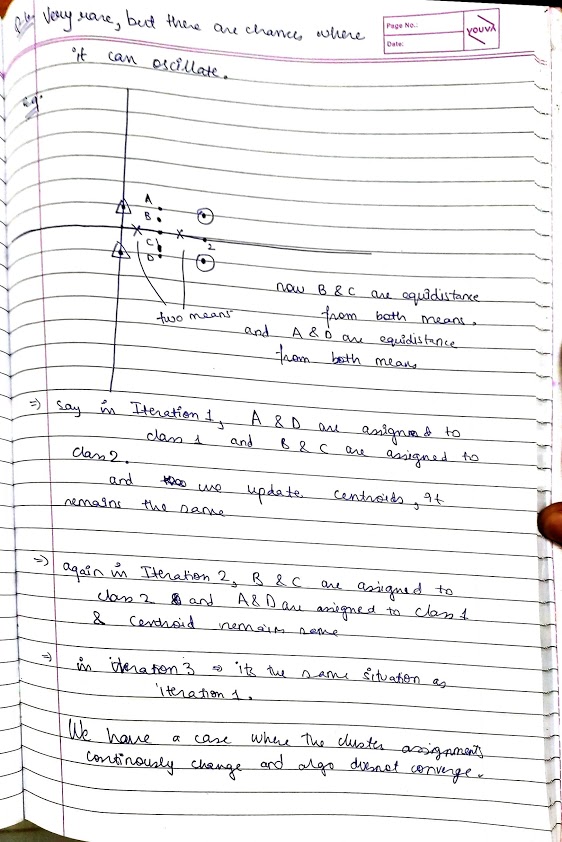 Very rare, but there are chances where
Page No.:
Date:
YOUVA
it can oscillate.
eg:
A
B
C
D
2
two means
now B & C are equidistance
from both means.
and A & D are equidistance
from both means
=) say in Iteration 1, A & D are assigned to
class 1 and B & C are assigned to
class 2.
and we update centroids, it
remains the same
=) again in Iteration 2, B & C are assigned to
class 2 and A & D are assigned to class 1
& centroid remains same
=) in iteration 3 => its the same situation as
iteration 1.
We have a case where the cluster assignments
continously change and algo doesnot converge.